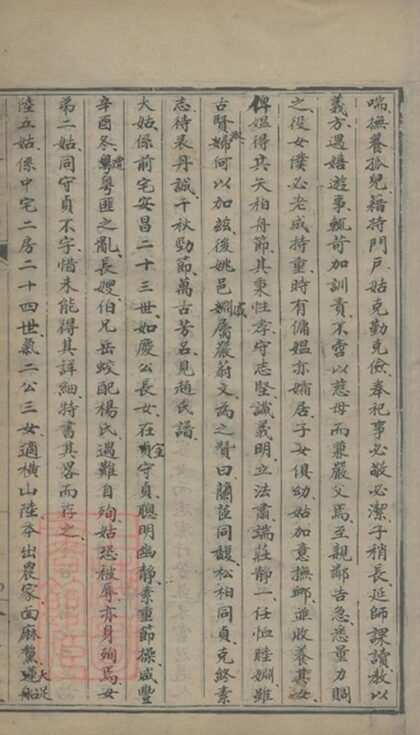 喘撫養孤兒藉持門戶姑克勤克儉奉祀事必敬必潔子稍長延師課讀教以
義方遇嬉遊事輒苛加訓責不啻以慈母而兼嚴父焉至親鄰告急悉量力賙
之役女僕必老成持重時有傭媼亦孀居子女俱幼姑加意撫卹並收養其女
俾媼得其矢柏舟節其秉性孝守志堅識義明立法肅端莊靜一任恤睦婣雖
古賢淑婦何以加茲後姚邑戚婣屬嚴蔚文為之贊曰蘭茝同馥松柏同貞克終素
志待表丹誠千秋勁節萬古芳名見趙氏譜
大姑係前宅安昌二十三世如慶公長女在室貞守貞聰明幽靜素重節操咸豐
辛酉冬遭粵匪之亂長嫂伯兄岳蛟配楊氏遇難自殉姑恐被辱亦身殉焉女
弟二姑同守貞不字惜未能得其詳細特書其畧而存之
陸五姑係中宅二房二十四世氣二公三女適橫山陸本出農家面麻黧大足